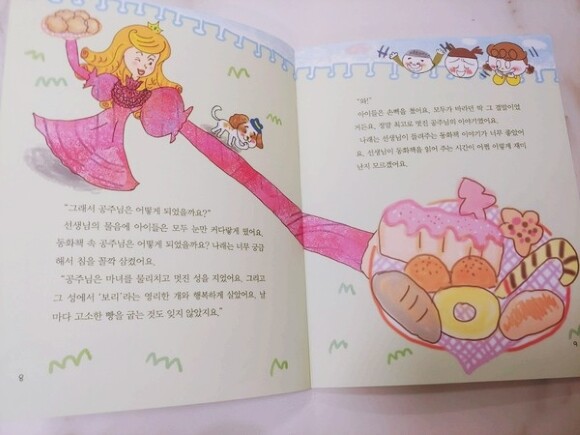 "그래서 공주님은 어떻게 되었을까요?"
선생님의 물음에 아이들은 모두 눈만 커다랗게 떴어요.
동화책 속 공주님은 어떻게 되었을까요? 나래는 너무 궁금
해서 침을 꼴깍 삼켰어요.
"공주님은 마녀를 물리치고 멋진 성을 지었어요. 그리고
그 성에서 '보리'라는 영리한 개와 행복하게 살았어요. 날
마다 고소한 빵을 굽는 것도 잊지 않았지요."
8
"와!"
아이들은 손뼉을 쳤어요. 모두가 바라던 딱 그 결말이었
거든요. 정말 최고로 멋진 공주님의 이야기였어요.
나래는 선생님이 들려주는 동화책 이야기가 너무 좋았어
요. 선생님이 동화책을 읽어 주는 시간이 어쩜 이렇게 재미
난지 모르겠어요.
9